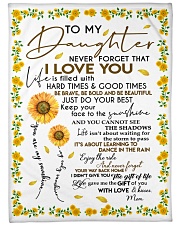 TO MY
Daughter
NEVER FORGET THAT
I LOVE YOU
Life is filled with
HARD TIMES & GOOD TIMES
BE BRAVE, BE BOLD AND BE BEAUTIFUL
JUST DO YOUR BEST
Keep your
face to the sunshine
AND YOU CANNOT SEE
THE SHADOWS
Life isn't about waiting
for the storm to pass
IT'S ABOUT LEARNING TO
DANCE IN THE RAIN
Enjoy the ride
And never forget
YOUR WAY BACK HOME
I DIDN'T GIVE YOU the gift of life
Life gave me the GIFT OF you
WITH LOVE & kisses
Mom
You are my sunshine